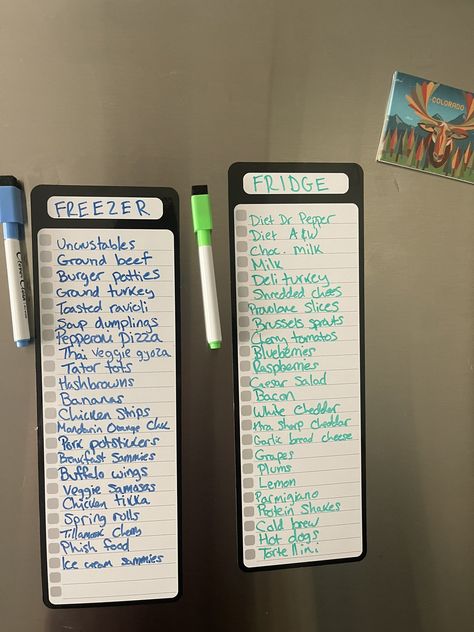 COLORADO
FREEZER
Uncrustables
Ground beef
Burger patties
Ground turkey
Toasted ravioli
Soup dumplings
Pepperoni Pizza
Thai veggie gyoza
Tator tots
Hashbrowns
Bananas
Chicken Strips
Mandarin Orange Chic
Pork potstickers
Breakfast Sammies
Buffalo wings
Veggie Samosas
Chicken tikka
Spring rolls
Tillamook Cherry
Phish food
Ice cream sammies
FRIDGE
Diet Dr Pepper
Diet A&W
Choc. milk
Milk
Deli turkey
Shredded chees
Provolone Slices
Brussels sprouts
Cherry tomatoes
Blueberries
Raspberries
Caesar Salad
Bacon
White Cheddar
Xtra sharp cheddar
Garlic bread cheese
Grapes
Plums
Lemon
Parmigiano
Protein Shakes
Cold brew
Hot dogs
Tortellini